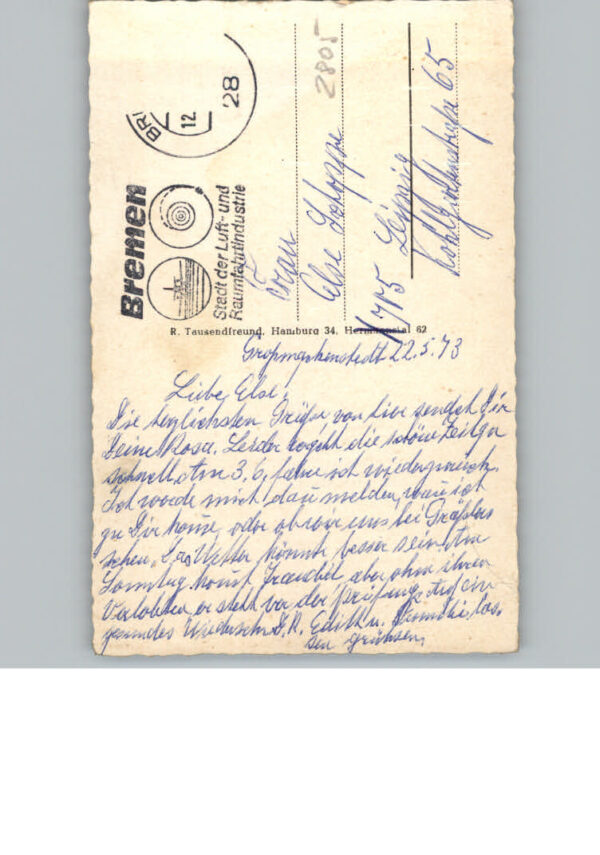 28
12
Bremen
Stadt der Luft- und
Raumfahrtindustrie
2805
Frau
Else Schoppe
7705 Leipzig
Kohlgartenstraße 65
R. Tausendfreund, Hamburg 34, Hermannstal 62
Großmackenstedt 22.5.73
Liebe Else!
Die herzlichsten Grüße von hier sendet Dir
Deine Rosa. Leider vergeht die schöne Zeit zu
schnell. Am 3.6. fahre ich wieder zurück.
Ich werde mich dan melden, wan ich
zu Dir kome, oder ob wir uns bei
sehen. Das Wetter könnte besser sein. Am
Sonntag komt Traudel, aber ohne ihren
Verlobten, er steht vor der Prüfung. Auf ein
gesundes Wiedersehn D. R. Edith u. Familie las-
sen grüssen.